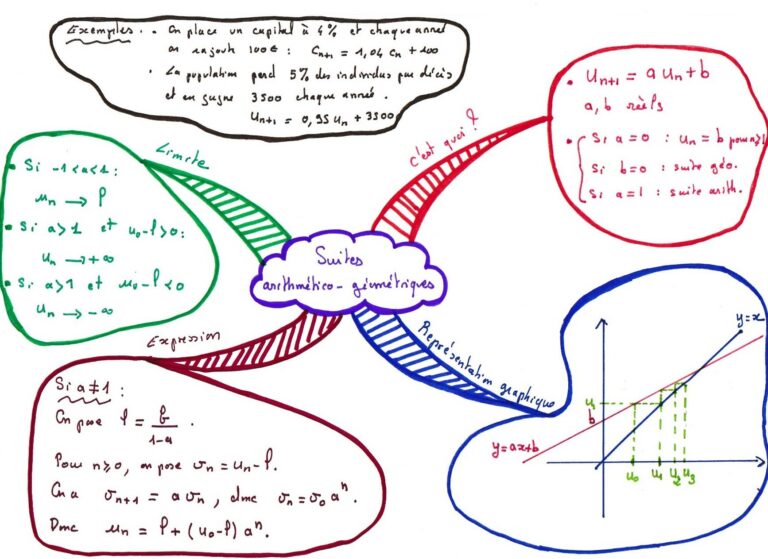 Exemples. • On place un capital à 4% et chaque année
on rajoute 100€ : Cn+1 = 1,04 Cn + 100
• La population perd 5% des individus par décès
et en gagne 3500 chaque année.
Un+1 = 0,95 Un + 3500
c'est quoi ?
• Un+1 = a Un + b
a, b réels
• Si a=0 : Un = b pour n≥1
Si b=0 : suite géo.
Si a=1 : suite arith.
Limite
• Si -1<a<1 :
un → l
• Si a>1 et u0-l>0 :
un → +∞
• Si a>1 et u0-l<0
un → -∞
Suites
arithmético-géométriques
Expression
Si a≠1 :
On pose l = b/(1-a) .
Pour n≥0, on pose vn = un-l.
On a vn+1 = a vn, donc vn = v0 aⁿ.
Donc un = l + (u0-l) aⁿ.
Représentation graphique
y=x
u1
b
y=ax+b
u0 u1 u2 u3